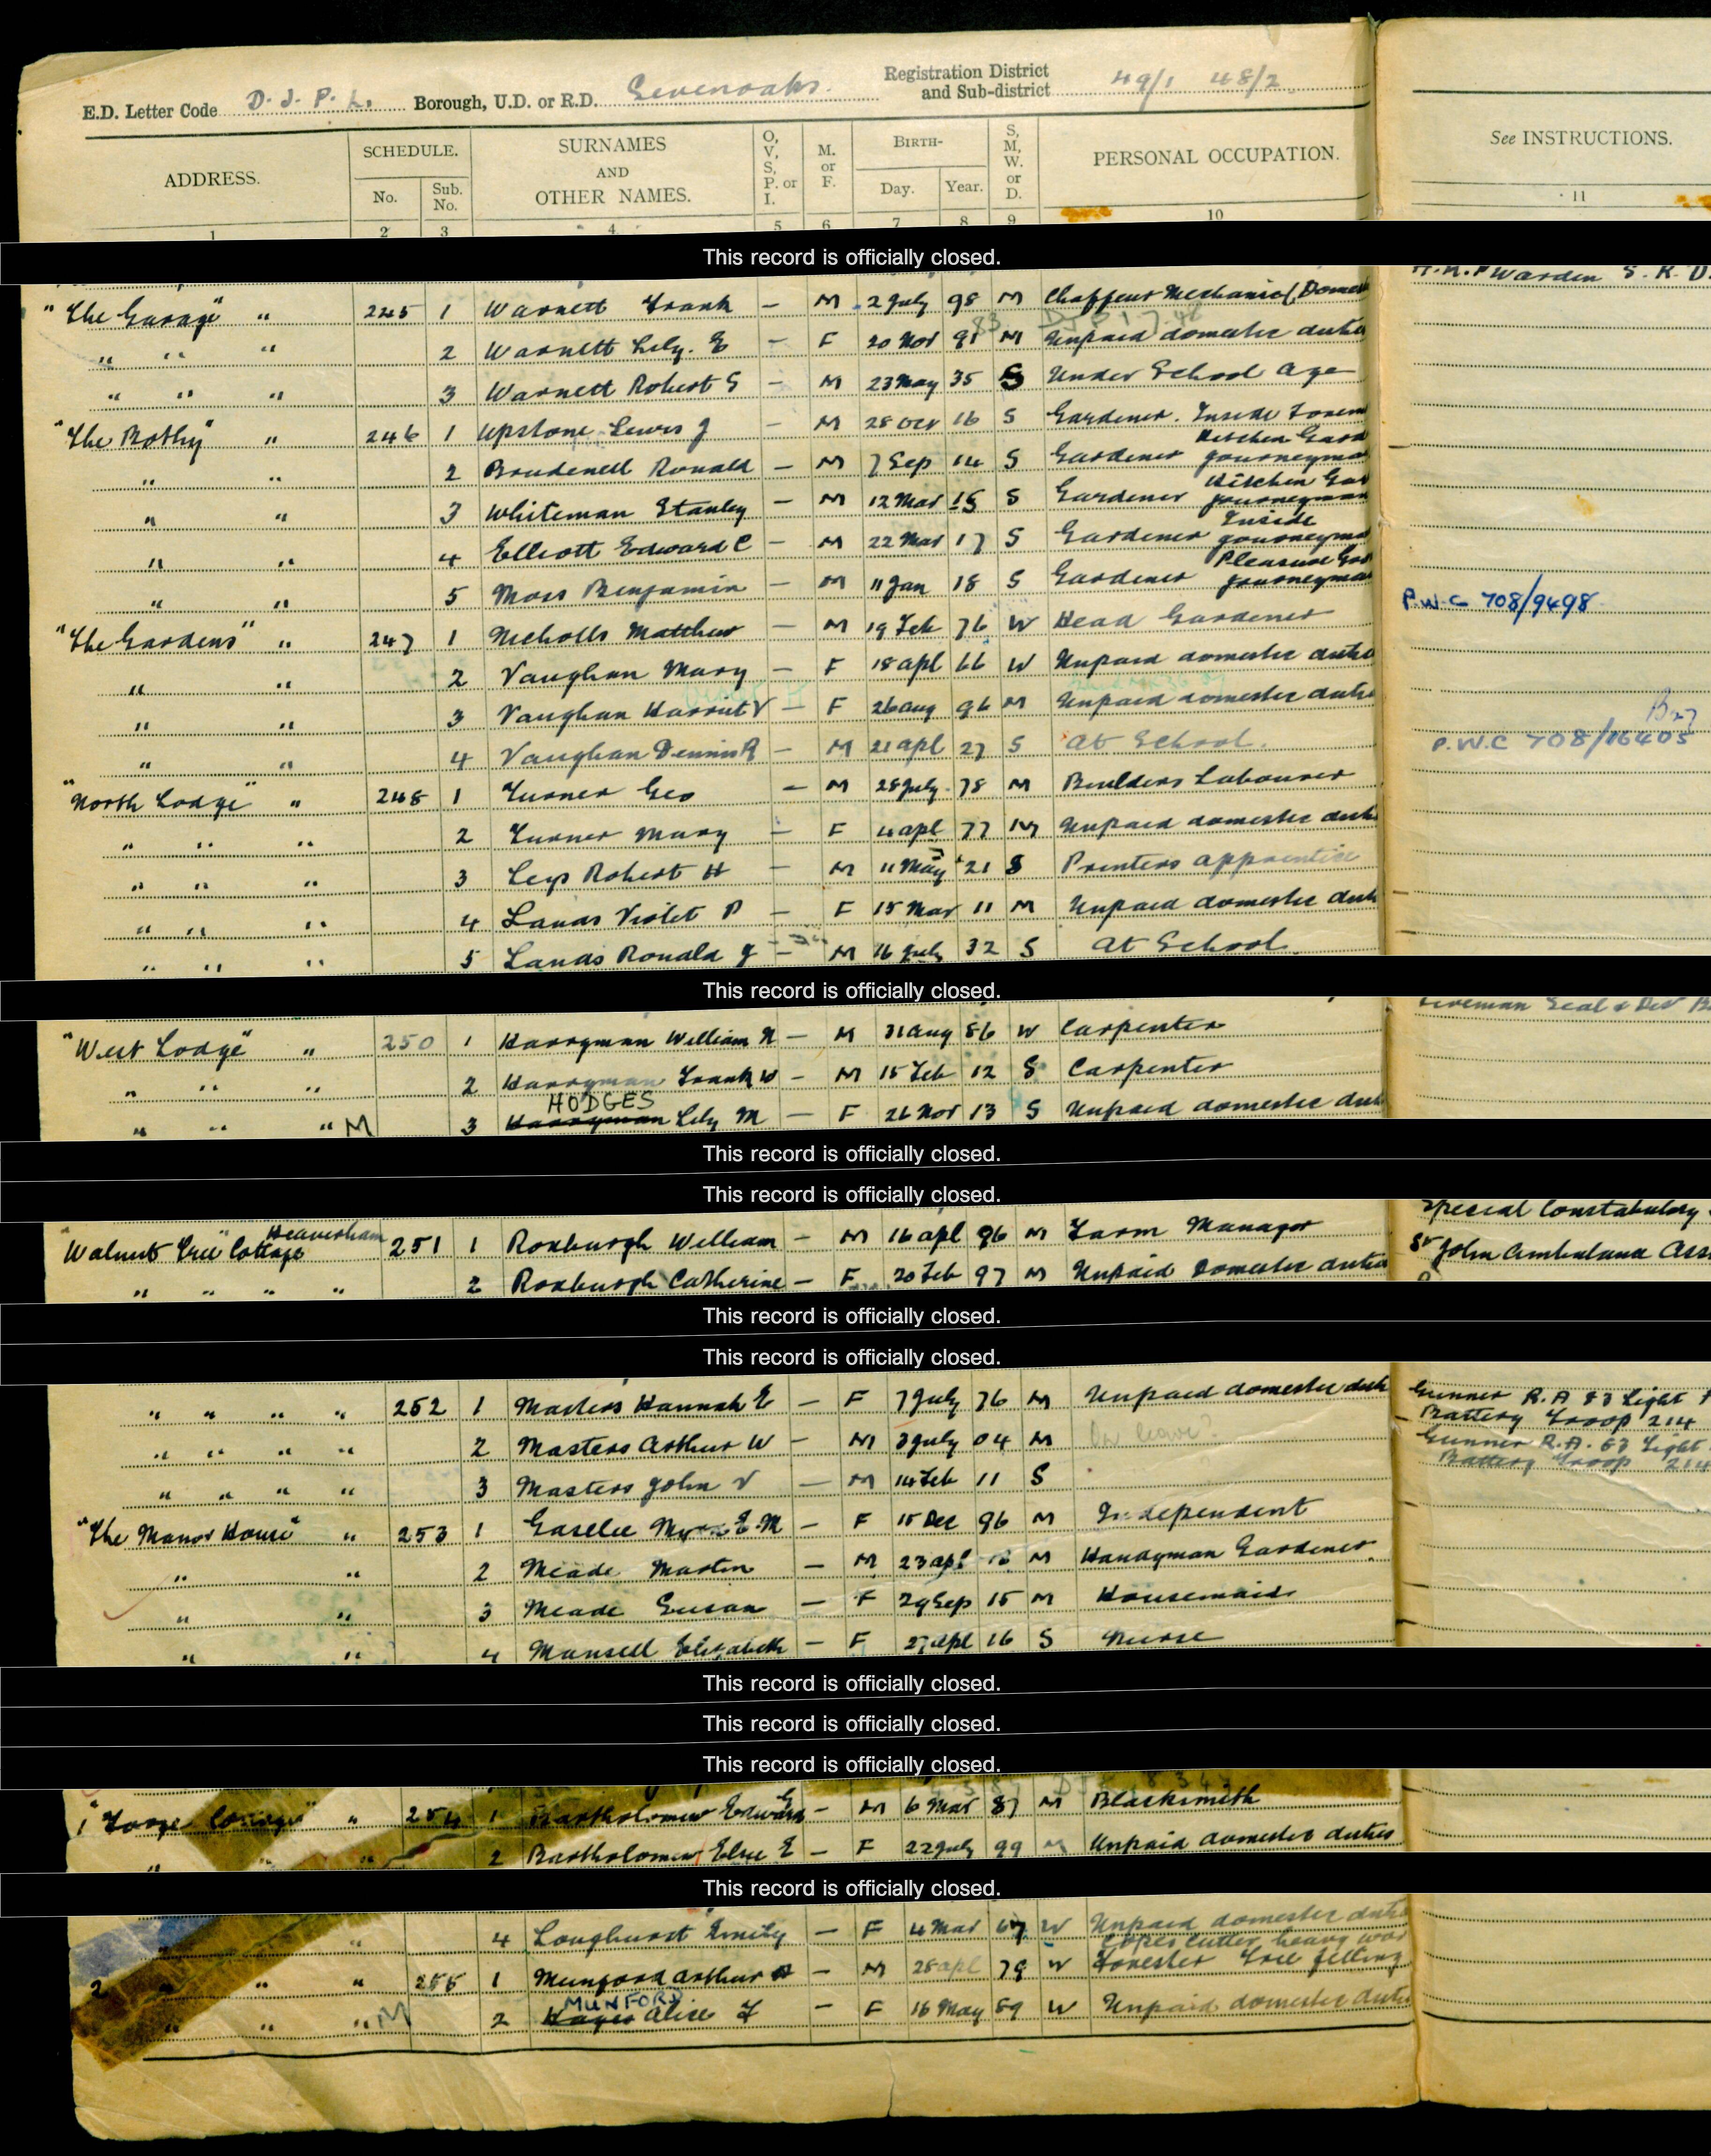 E.D. Letter Code D. J. P. L. Borough, U.D. or R.D. Sevenoaks. Registration District and Sub-district 49/1 48/2
ADDRESS. SCHEDULE. No. Sub. No. SURNAMES AND OTHER NAMES. O, V, S, P. or I. M. or F. BIRTH- Day. Year. S, M, W. or D. PERSONAL OCCUPATION. See INSTRUCTIONS.
1 2 3 4 5 6 7 8 9 10 11
This record is officially closed.
Warden S. R. D.
"The Garage" " 245 1 Warnett Frank — M 2 July 98 M Chaffeur Mechanic (Domes
" " " 2 Warnett Lily. E — F 20 Nov 91 M Unpaid domestic dutie
" " " 3 Warnett Robert S — M 23 May 35 S Under School age
"The Bothy" " 246 1 Upstone Lewis J — M 28 Oct 16 S Gardener. Inside Forem
" " 2 Brudenell Ronald — M 7 Sep 14 S Gardener Kitchen Gard journeyma
" " 3 Whiteman Stanley — M 12 Mar 15 S Gardener Kitchen Gar journeyman
" " 4 Elliott Edward C — M 22 Mar 17 S Gardener Inside journeyma
" " 5 Moss Benjamin — M 11 Jan 18 S Gardener Pleasure Gar journeyma
P.W.C 708/9498
"The Gardens" " 247 1 Nicholls Matthew — M 19 Feb 76 W Head Gardener
" " 2 Vaughan Mary — F 18 apl 66 W Unpaid domestic dutie
" " 3 Vaughan Harriet V — F 26 aug 96 M Unpaid domestic dutie
" " 4 Vaughan Dennis R — M 21 apl 27 S at School. P.W.C 708/16405
"North Lodge" " 248 1 Turner Geo — M 28 July 78 M Builders Labourer
" " " 2 Turner Mary — F 4 apl 77 M Unpaid domestic duti
" " " 3 Leys Robert H — M 11 May 21 S Printers apprentice
" " " 4 Lanas Violet P — F 15 Mar 11 M Unpaid domestic duti
" " " 5 Lanas Ronald J — M 16 July 32 S at School
This record is officially closed.
"West Lodge" " 250 1 Harryman William N — M 31 aug 86 W Carpenter
" " " 2 Harryman Frank W — M 15 Feb 12 S Carpenter
HODGES
" " " M 3 Harryman Lily M — F 26 Nov 13 S Unpaid domestic duti
This record is officially closed.
This record is officially closed.
Special Constabulary
"Walnut Tree" Cottage Heaverham 251 1 Roxburgh William — M 16 apl 96 M Farm Manager St John Ambulance Ass
" " " " 2 Roxburgh Catherine — F 20 Feb 97 M Unpaid Domestic dutie
This record is officially closed.
This record is officially closed.
" " " " 252 1 Masters Hannah E — F 7 July 76 M Unpaid domestic duti Gunner R.A 83 Light
" " " " 2 Masters Arthur W — M 3 July 04 M on leave? Battery Troop 214
Gunner R.A. 83 Light
" " " " 3 Masters John V — M 14 Feb 11 S Battery Troop 214
"The Manor House" " 253 1 Gaselee E.M — F 15 Dec 96 M Independent
" " 2 Meade Martin — M 23 apl M Handyman Gardener.
" " 3 Meade Susan — F 29 Sep 15 M Housemaid
" " 4 Mansell Elizabeth — F 27 apl 16 S Nurse
This record is officially closed.
This record is officially closed.
This record is officially closed.
1 "Forge Cottage" " 254 1 Bartholomew Edward — M 6 Mar 87 M Blacksmith
" " 2 Bartholomew Elsie E — F 22 July 99 M Unpaid domestic duties
This record is officially closed.
" " 4 Longhurst Emily — F 4 Mar 67 W Unpaid domestic dutie
2 " " " 255 1 Munford Arthur — M 28 apl 79 W Copse cutter, heavy wor Forester Tree felling
MUNFORD
" " " M 2 Hayes Alice F — F 16 May 89 W Unpaid domestic dutie